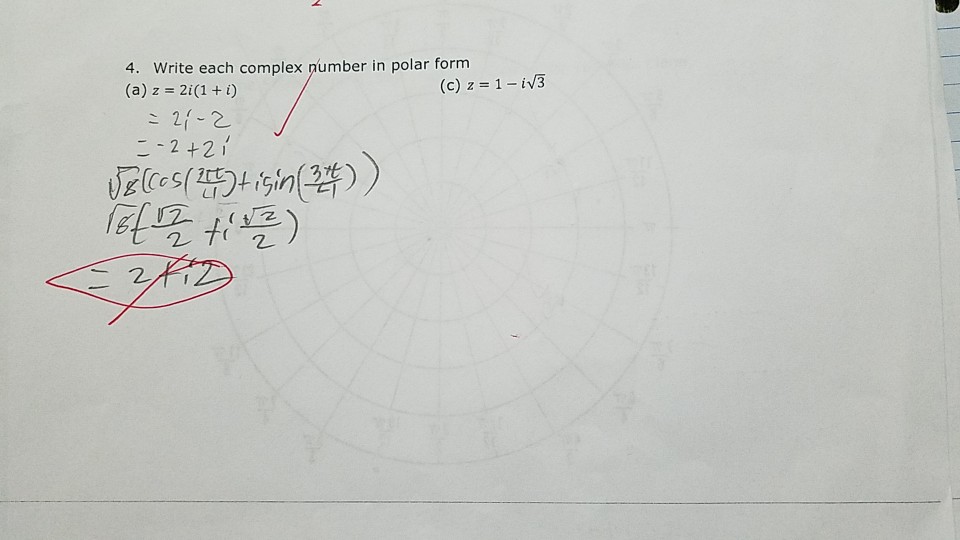 4. Write each complex number in polar form
(a) z = 2i(1 + i)
(c) z = 1 − i√3
= 2i - 2
= -2 + 2i
√8(cos(3π/4) + i sin(3π/4))
√8(√2/2 + i √2/2)
= 2 + i2